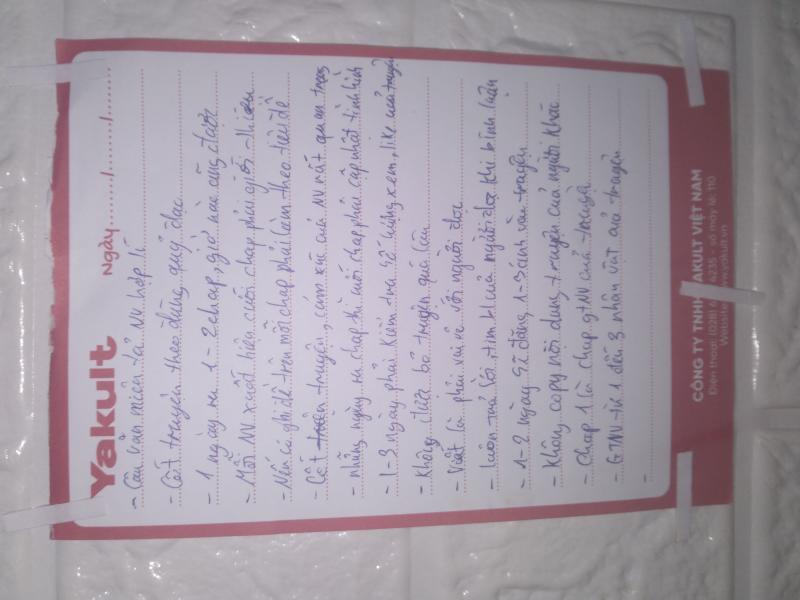 Yakult
Ngày....../....../......
- Câu văn miêu tả NV hợp lí
- Cốt truyện theo đúng quỹ đạo
- 1 ngày ra 1-2 chap, giờ nào cũng được
- Mỗi NV xuất hiện cuối chap phải giới thiệu
- Nếu có ghi đề trên mỗi chap phải làm theo tiêu đề
- Cốt truyện, cảm xúc của NV rất quan trọng
- những ngày ra chap thì mỗi chap phải cập nhật tình hình
- 1-3 ngay phải kiểm tra số lượng xem, like của truyện
- Không được bỏ truyện quá lâu
- Viết là phải vui vẻ với người đọc
- luôn trả lời, tim bl của người đọc khi bình luận
- 1-2 ngày sẽ đăng 1-3 ảnh vào truyện
- Không copy nội dung truyện của người khác
- Chap 1 là chap gtNV của truyện
- GTNV từ 1 đến 3 nhân vật của truyện
-
CÔNG TY TNHH YAKULT VIỆT NAM
Điện thoại: (028) 4235 - số máy lẻ: 110
Website: www.yakult.vn